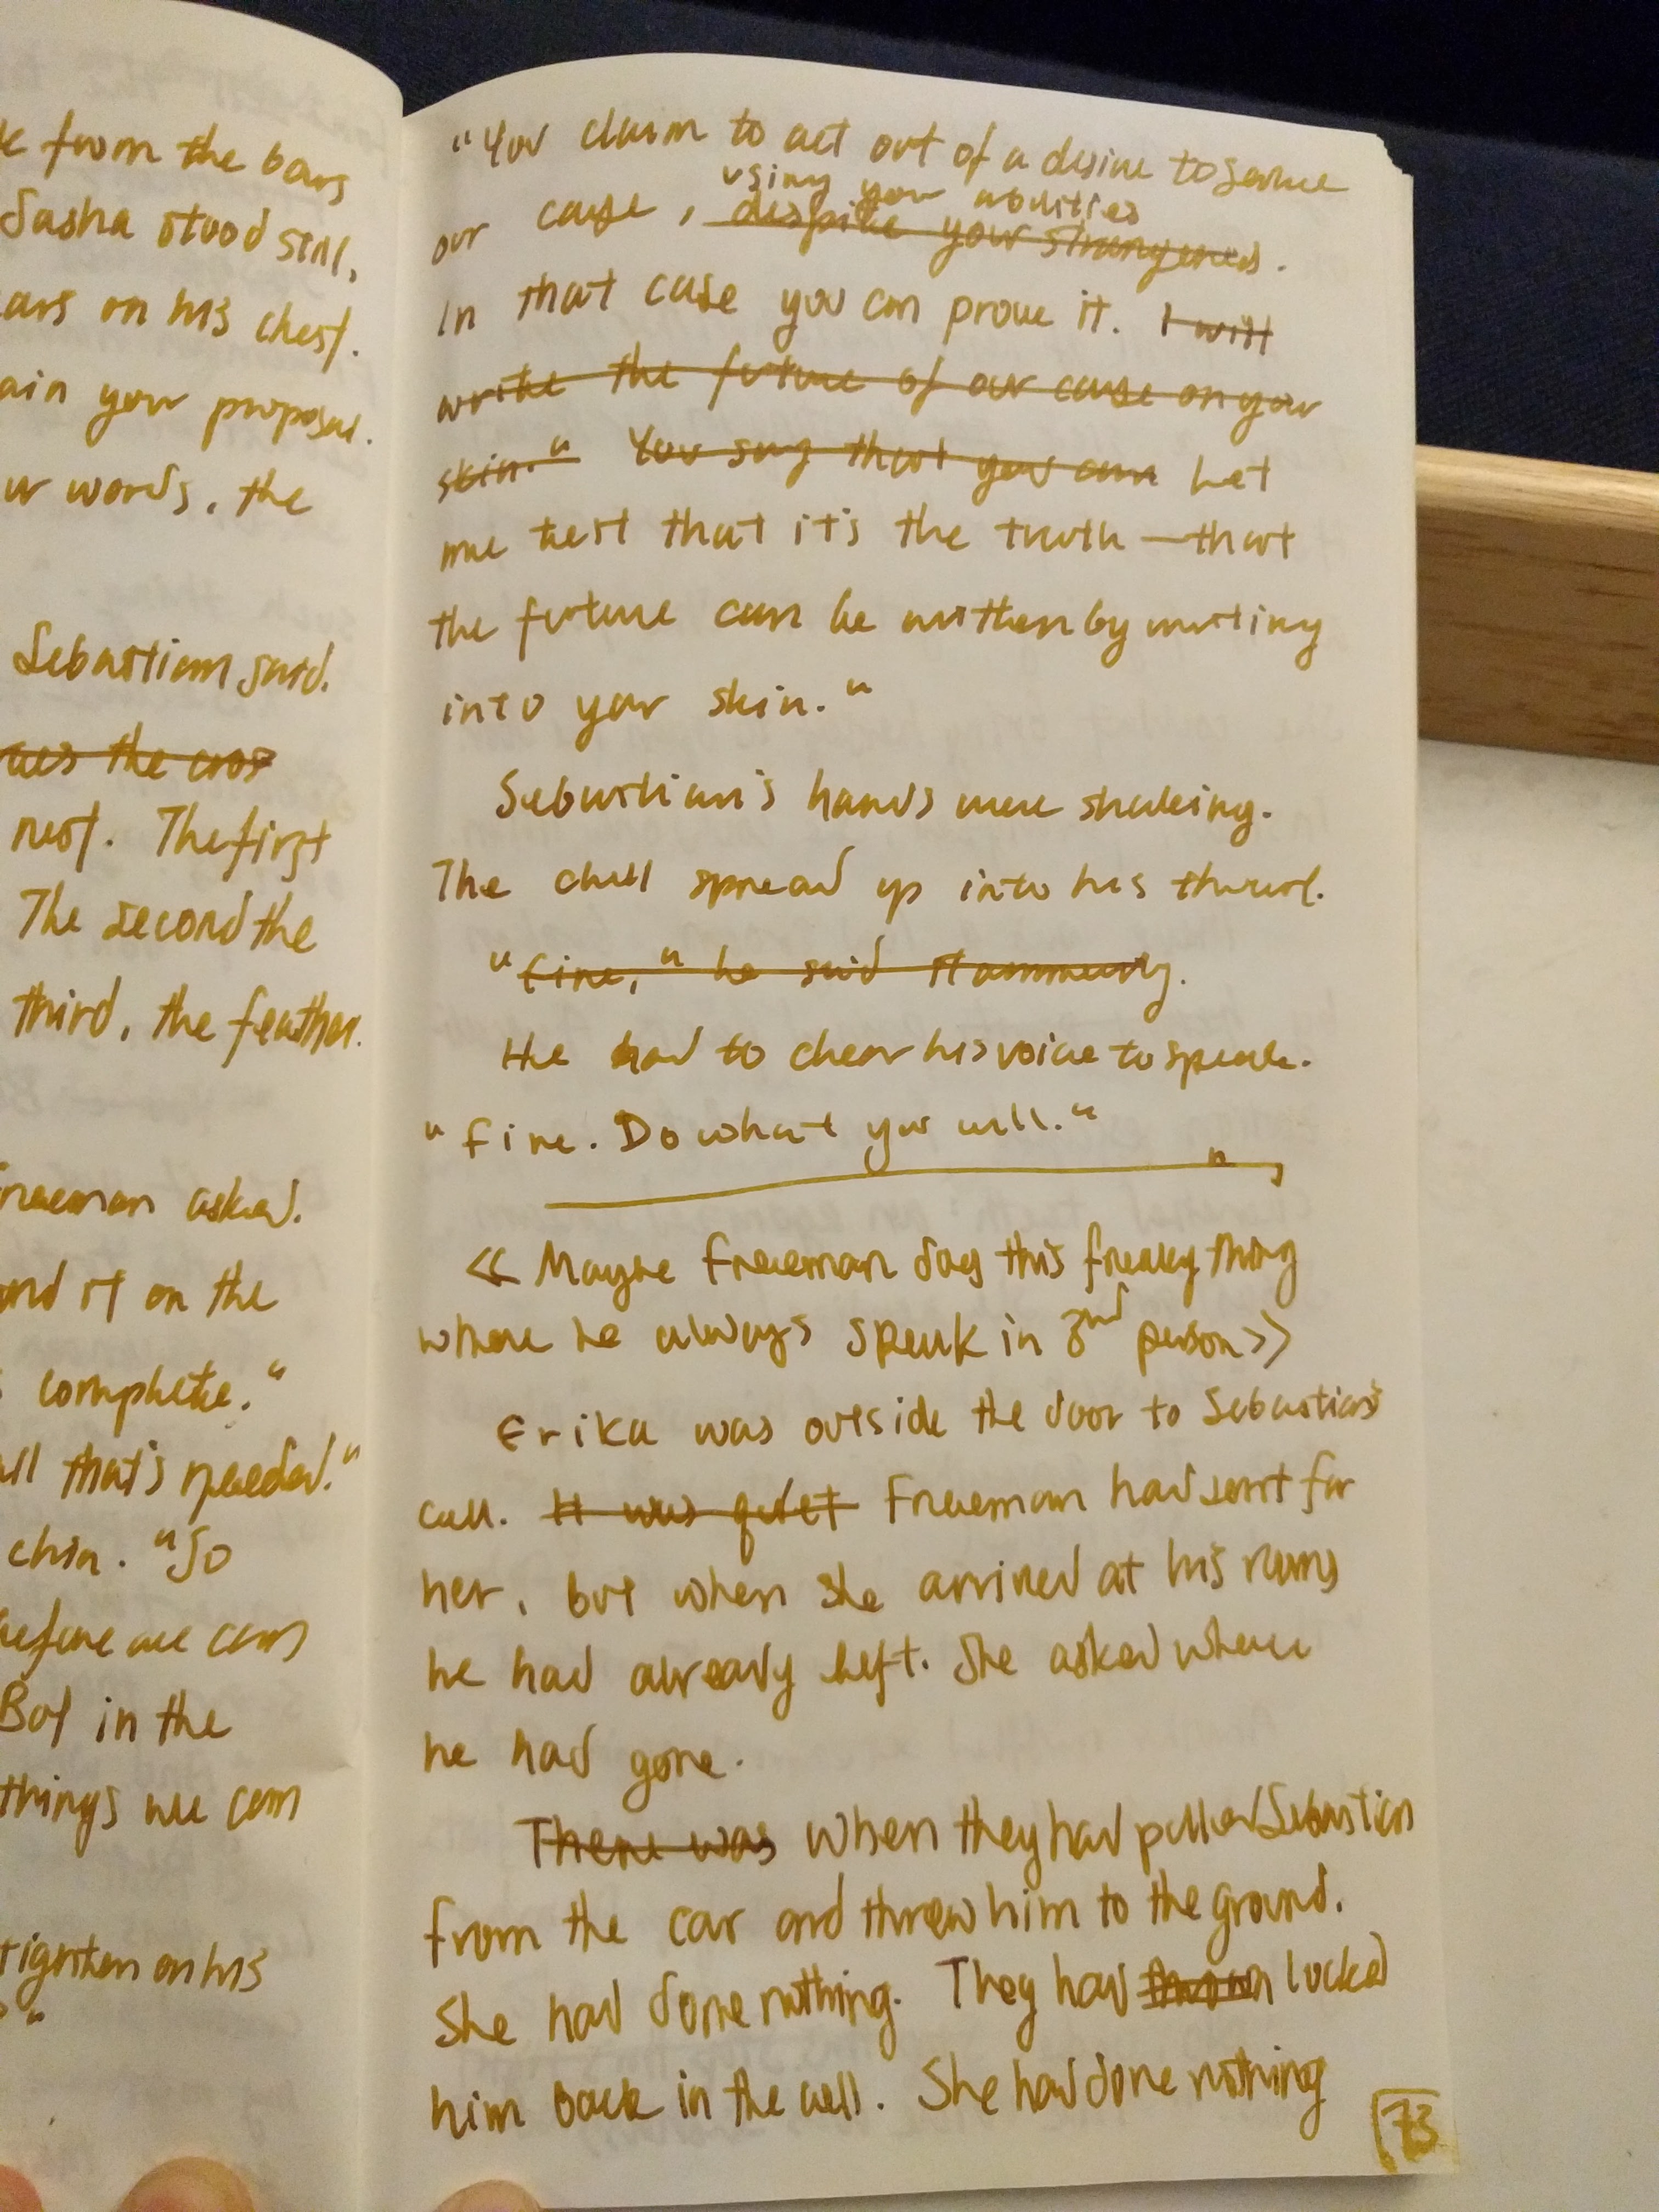 k from the bars
Sasha stood still,
ars on his chest.
ain your proposal.
ur words, the
Sebastian said.
ues the cros
nest. The first
The second the
third, the feather.
Freeman asked.
and it on the
complete."
all that's needed."
chin. "So
before we can
But in the
things we can
tighten on his
"
"You claim to act out of a desire to serve
using your abilities
our cause, despite your strangeness.
In that case you can prove it. I will
write the future of our cause on your
skin." You say that you can Let
me test that it's the truth — that
the future can be written by writing
into your skin."
Sebastian's hands were shaking.
The chill spread up into his throat.
"Fine," he said stammerly.
He had to clear his voice to speak.
"Fine. Do what you will."
<< Maybe Freeman does this freaky thing
where he always speak in 3nd person>>
Erika was outside the door to Sebastian's
cell. It was quiet Freeman had sent for
her, but when she arrived at his rooms
he had already left. She asked where
he had gone.
There was When they had pulled Sebastian
from the car and threw him to the ground.
She had done nothing. They had thrown locked
him back in the cell. She had done nothing
73